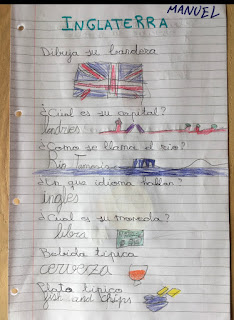 MANUEL
INGLATERRA
Dibuja su bandera
¿Cual es su capital?
londres
¿Como se llama el rio?
Rio Tamesis
¿En que idioma hablan?
inglés
¿Cual es su moneda?
libra
Bebida típica
cerveza
Plato típico
fish and chips